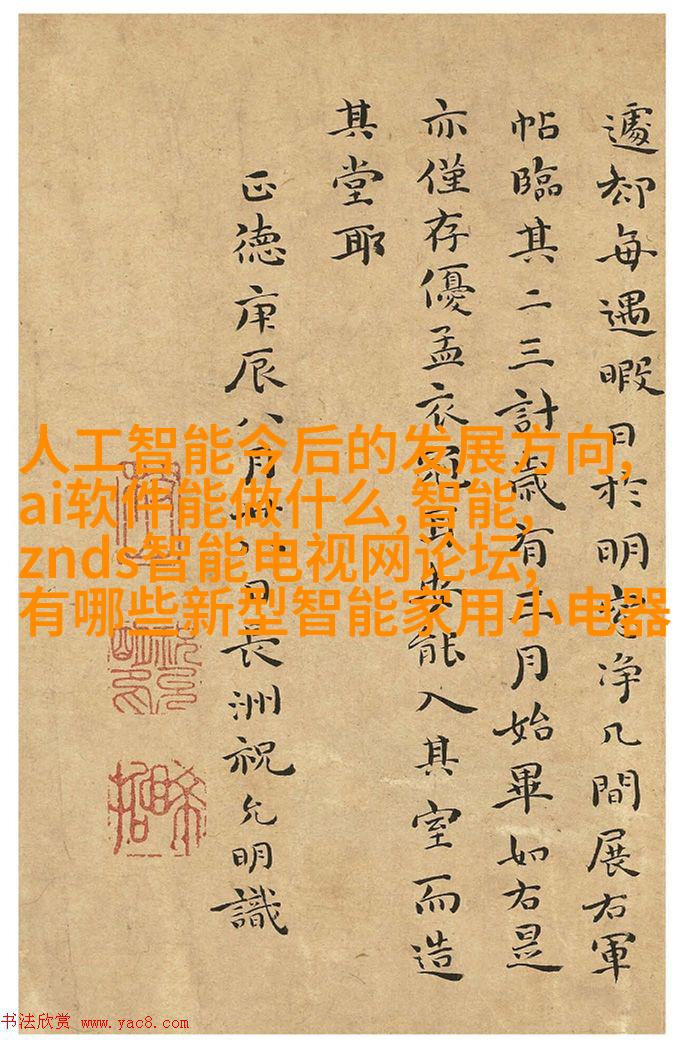 遽却每遇暇日於明窓净几間展右軍
帖臨其二三計歲有月始畢如右是
亦僅存優孟衣冠安能入其室而造
其堂耶
正德庚辰八月廿日長洲祝允明識
人工智能今后的发展方向,
ai软件能做什么,智能,
znds智能电视网论坛,
有哪些新型智能家用小电器
书法欣赏 www.yac8.com